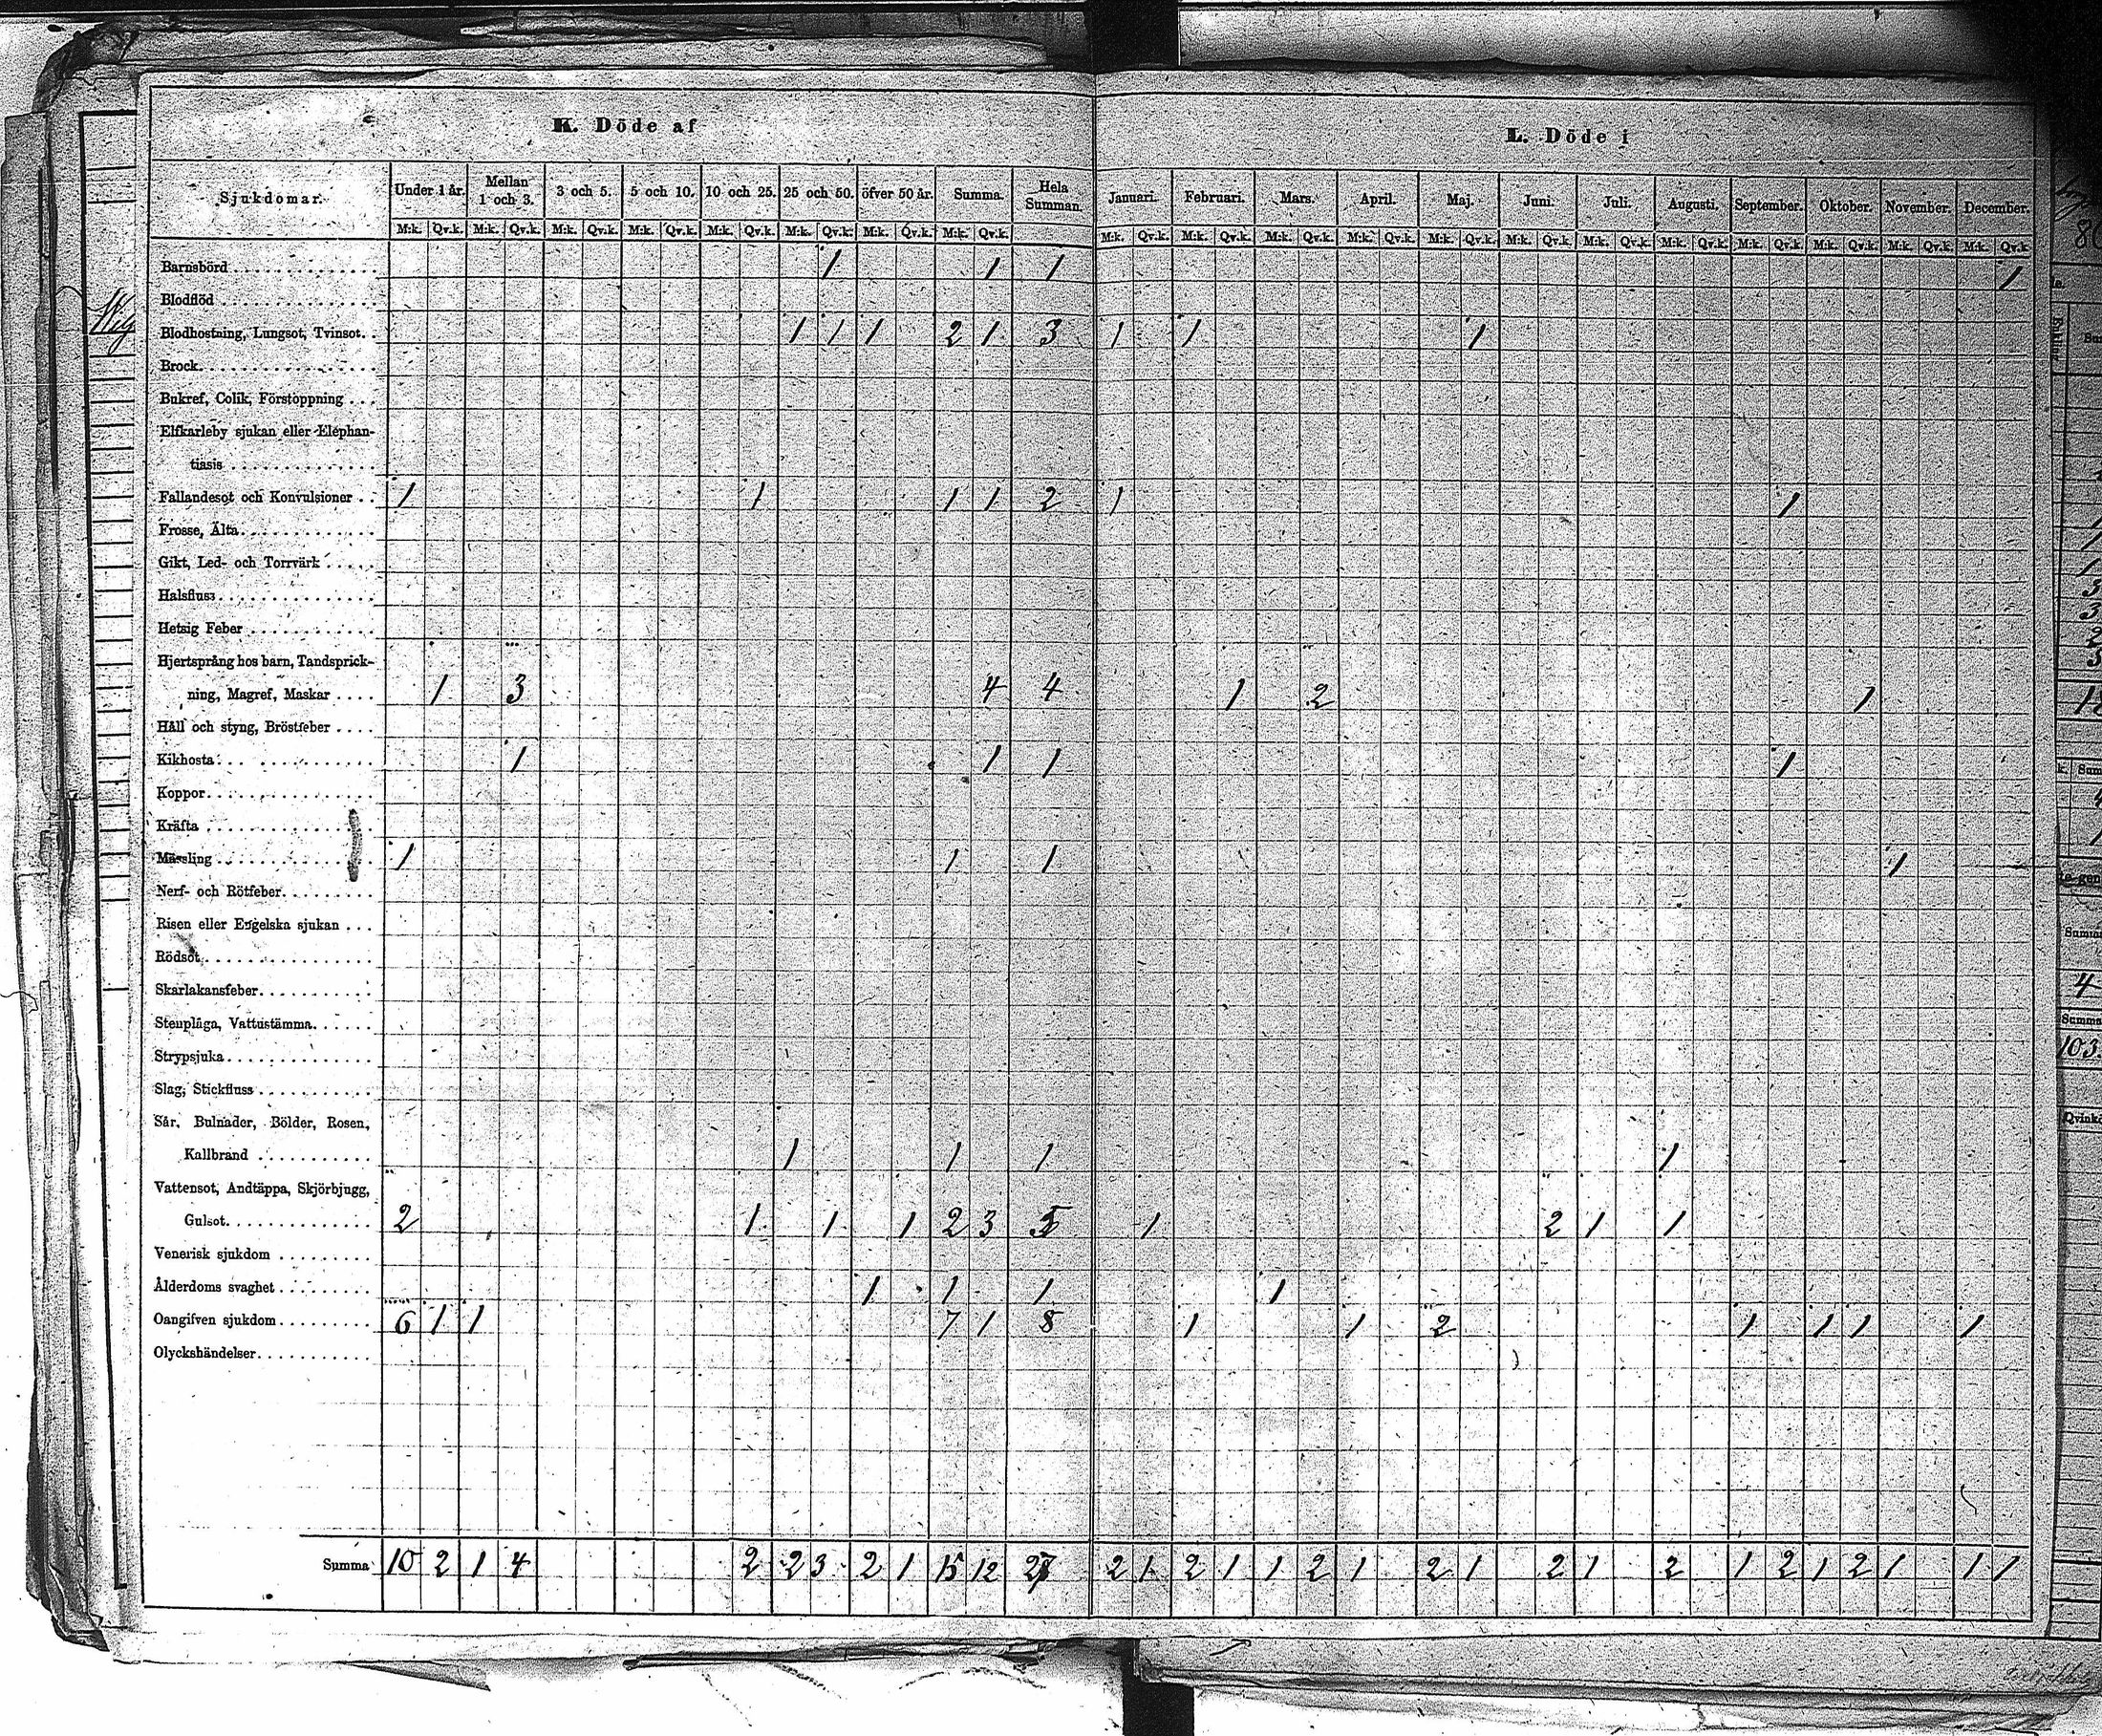 K. Döde af
L. Döde i
Sjukdomar. Under 1 år. Mellan 1 och 3. 3 och 5. 5 och 10. 10 och 25. 25 och 50. öfver 50 år. Summa. Hela Summan. Januari. Februari. Mars. April. Maj. Juni. Juli. Augusti. September. Oktober. November. December.
M:k. Qv.k. M:k. Qv.k. M:k. Qv.k. M:k. Qv.k. M:k. Qv.k. M:k. Qv.k. M:k. Qv.k. M:k. Qv.k. M:k. Qv.k. M:k. Qv.k. M:k. Qv.k. M:k. Qv.k. M:k. Qv.k. M:k. Qv.k. M:k. Qv.k. M:k. Qv.k. M:k. Qv.k. M:k. Qv.k. M:k. Qv.k. M:k. Qv.k.
Barnsbörd 1 1 1 1
Blodflöd
Blodhostning, Lungsot, Tvinsot. 1 1 1 2 1 3 1 1 1
Brock
Bukref, Colik, Förstoppning
Elfkarleby sjukan eller Elephan-
tiasis
Fallandesot och Konvulsioner 1 1 1 1 2 1 1
Frosse, Älta
Gikt, Led- och Torrvärk
Halsfluss
Hetsig Feber
Hjertsprång hos barn, Tandsprick-
ning, Magref, Maskar 1 3 4 4 1 2 1
Håll och styng, Bröstfeber
Kikhosta 1 1 1 1
Koppor
Kräfta
Mässling 1 1 1 1
Nerf- och Rötfeber
Risen eller Engelska sjukan
Rödsot
Skarlakansfeber
Stenplåga, Vattustämma
Strypsjuka
Slag, Stickfluss
Sår, Bulnader, Bölder, Rosen,
Kallbrand 1 1 1 1
Vattensot, Andtäppa, Skjörbjugg,
Gulsot 2 1 1 1 2 3 5 1 2 1 1
Venerisk sjukdom
Ålderdoms svaghet 1 1 1 1
Oangifven sjukdom 6 1 1 7 1 8 1 1 2 1 1 1 1
Olyckshändelser
Summa 10 2 1 4 2 2 3 2 1 15 12 27 2 1 2 1 1 2 1 2 1 2 1 2 1 2 1 2 1 1 1